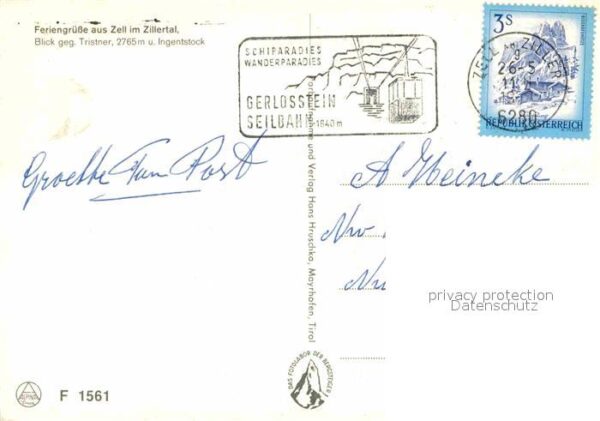 Feriengrüße aus Zell im Zillertal,
Blick geg. Tristner, 2765 m u. Ingentstock
SCHIPARADIES
WANDERPARADIES
GERLOSSTEIN
SEILBAHN
-1640 m
3S
REPUBLIK ÖSTERREICH
ZELL AM ZILLER
26-5
11
6280
Groette Fam Post
A Meineke
Nw
Nu
und Verlag Hans Hruschka, Mayrhofen, Tirol
privacy protection
DAS FOTOLABOR DER BERGSTEIGER
F 1561